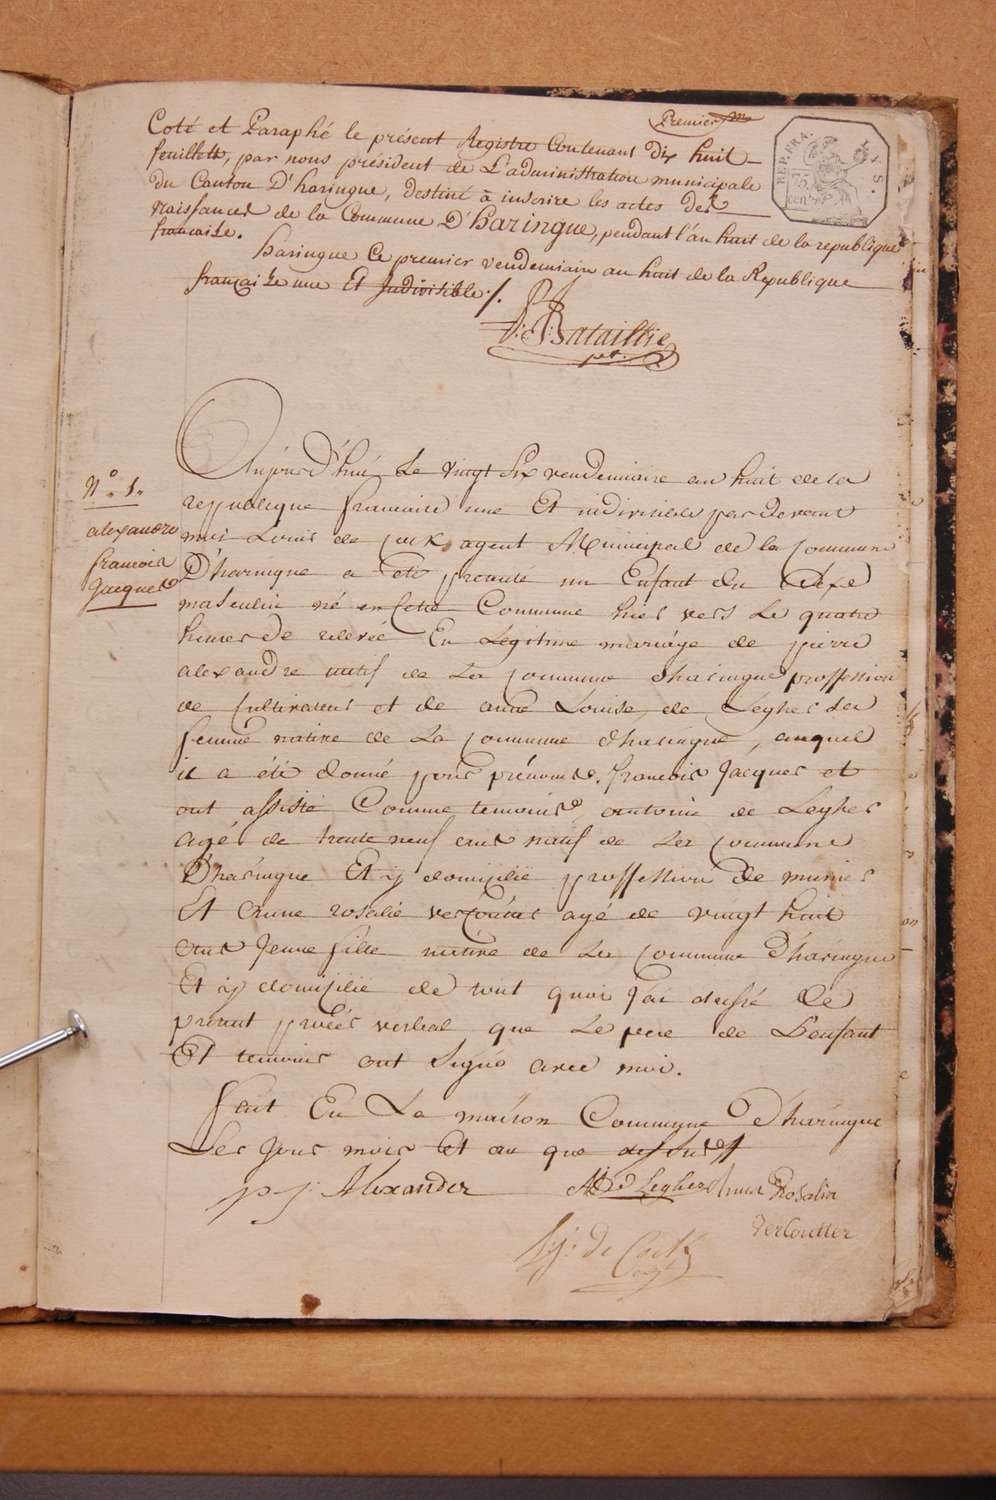 Premier
REP. FRA.
75
cent.
Coté et Paraphé le présent Registre Contenant dix huit
feuillets, par nous président de L'administration municipale
du Canton D'haringue, destiné à inscrire les actes des
naissances de la Commune D'haringue, pendant l'an huit de la republique
francaise.
haringue Ce premier vendemiaire an huit de la Republique
française une Et Indivisible ./.
Bataillie
N.° 1.
alexandre
francois
Jacques
Aujourd'hui Le vingt six vendemiaire an huit de la
republique francaise une Et indivisible pardevant
moi Louis de cock agent Municipal de la commune
D'haringue a été presenté un Enfant du Sexe
masculin né en Cette Commune hier vers Le quatre
heures de relevée En Legitime mariage de pierre
alexandre natif de La commune d'haringue proffession
de Cultivateur et de anne Louise de Leyher sa
femme native de La commune d'haringue, auquel
il a été donné pour prénoms francois Jacques et
ont assisté Comme temoins antoine de Leyher
agé de trente neuf ans natif de La commune
D'haringue Et y domicilié proffession de
Et anne rosalie vercoutter agé de vingt huit
ans Jeune fille native de La commune D'haringue
Et y domicilié de tout quoi J'ai dressé Le
present procés verbal que Le pere de L'enfant
Et temoins ont Signé avec moi.
fait En La maison Commune D'haringue
Les jour mois Et an que dessus
p j: Alexander
A: D: d Leyher
Anna Rosalia
VerCoutter
L: j: De Cock
agt